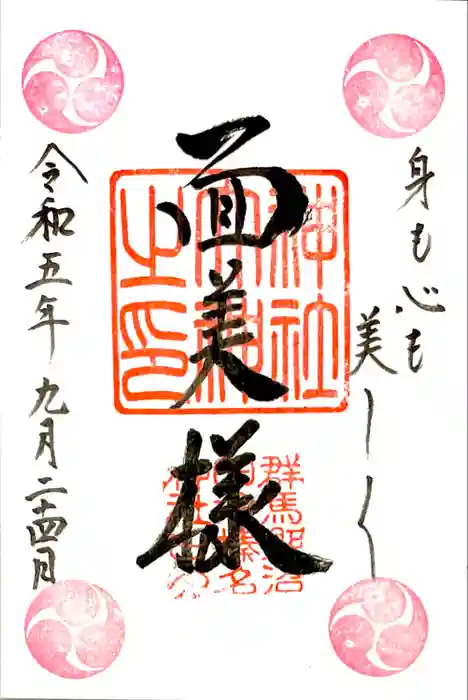 身も心も
美しく
面美様
令和五年九月二十四月
群馬県沼